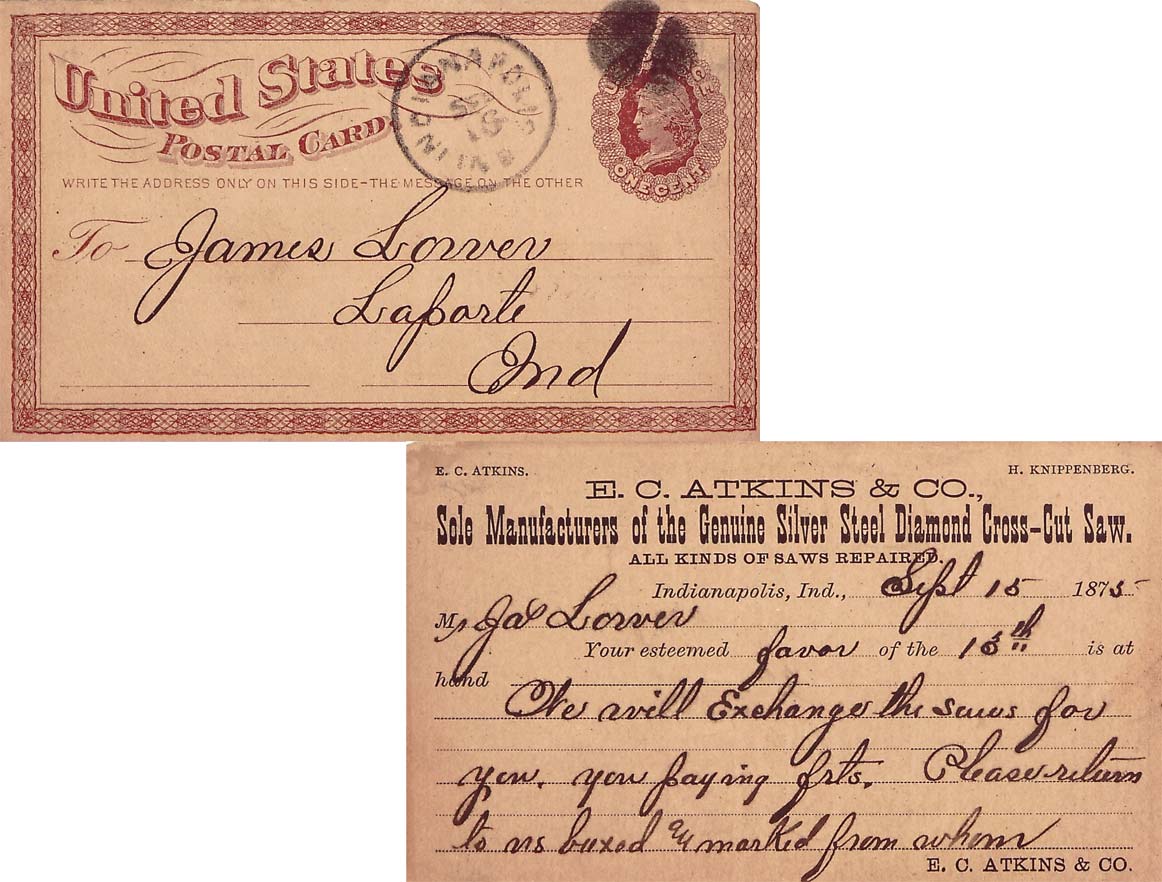 United States
POSTAL CARD
INDIANAPOLIS
IND
SEP
15
ONE CENT
WRITE THE ADDRESS ONLY ON THIS SIDE-THE MESSAGE ON THE OTHER
To James Lower
Laporte
Ind
E. C. ATKINS. H. KNIPPENBERG.
E. C. ATKINS & CO.,
Sole Manufacturers of the Genuine Silver Steel Diamond Cross-Cut Saw.
ALL KINDS OF SAWS REPAIRED.
Indianapolis, Ind., Sept 15 1875
Mr Jas Lower
Your esteemed favor of the 13th is at
hand
We will Exchange the saws for
you. you paying frts. Please return
to us boxed & marked from whom
E. C. ATKINS & CO.